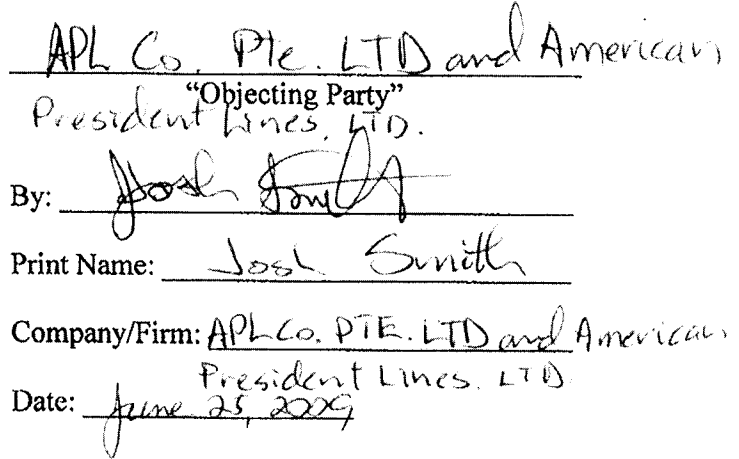 APL Co. Pte. LTD and American
"Objecting Party"
President Lines, LTD.
By: Josh Smith
Print Name: Josh Smith
Company/Firm: APL Co. PTE. LTD and American
President Lines. LTD
Date: June 25, 2009